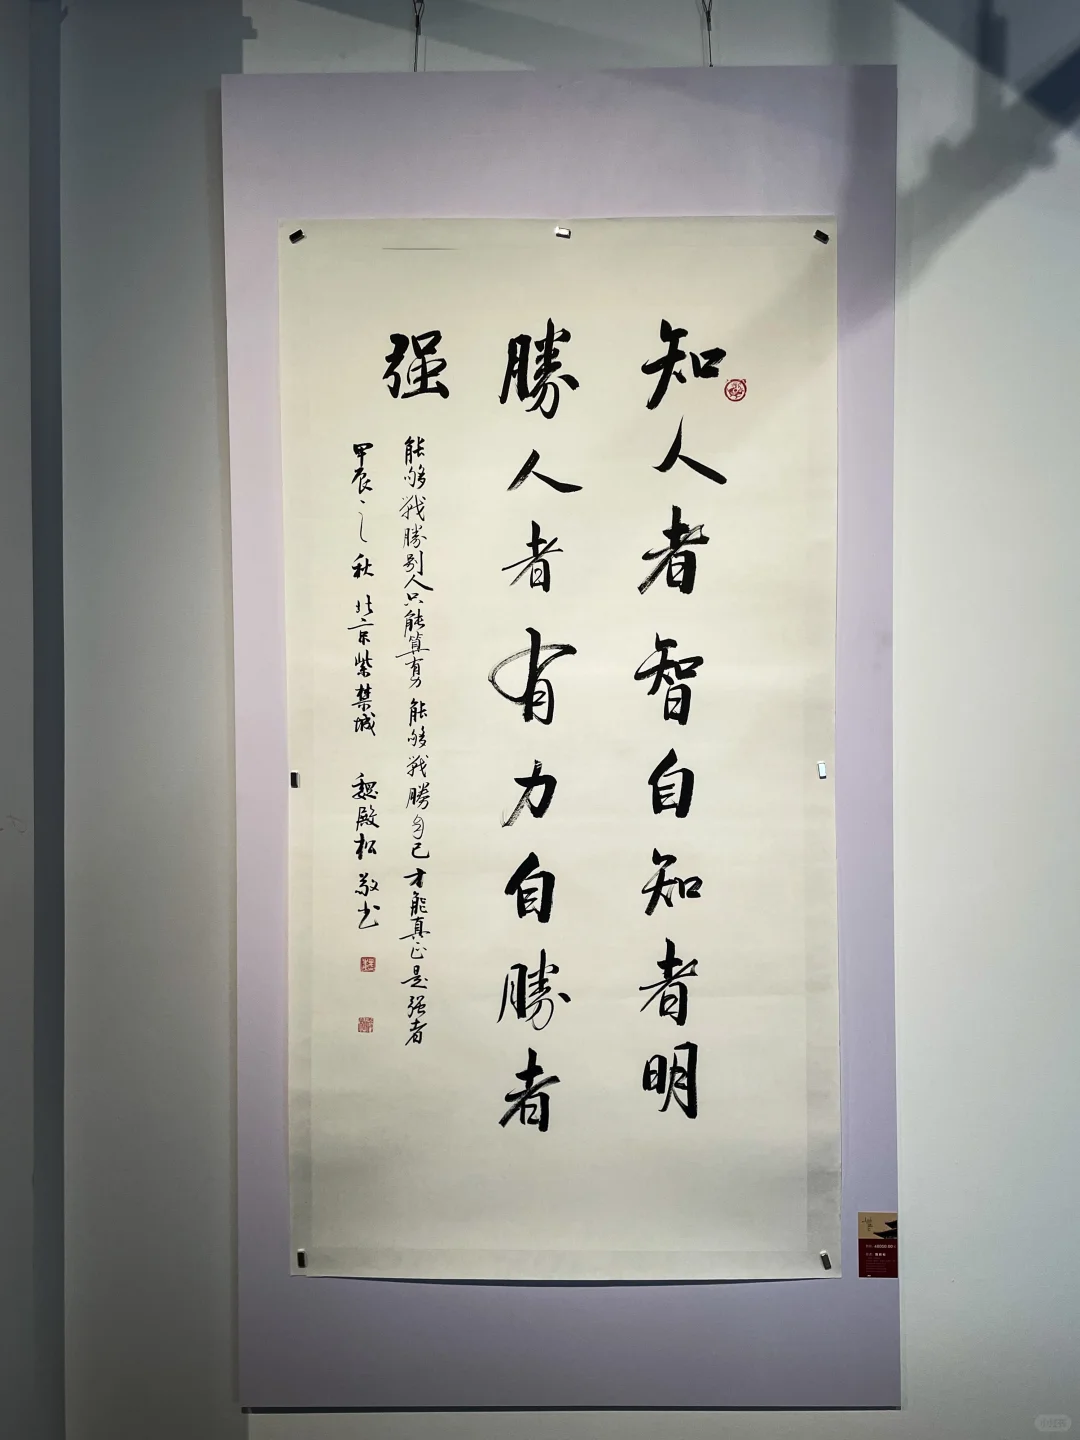 知人者智自知者明
勝人者有力自勝者
强
能够戰勝别人只能算有力 能够戰勝自己才能真正是强者
甲辰之秋 北京紫禁城 魏殿松敬书
48000.00